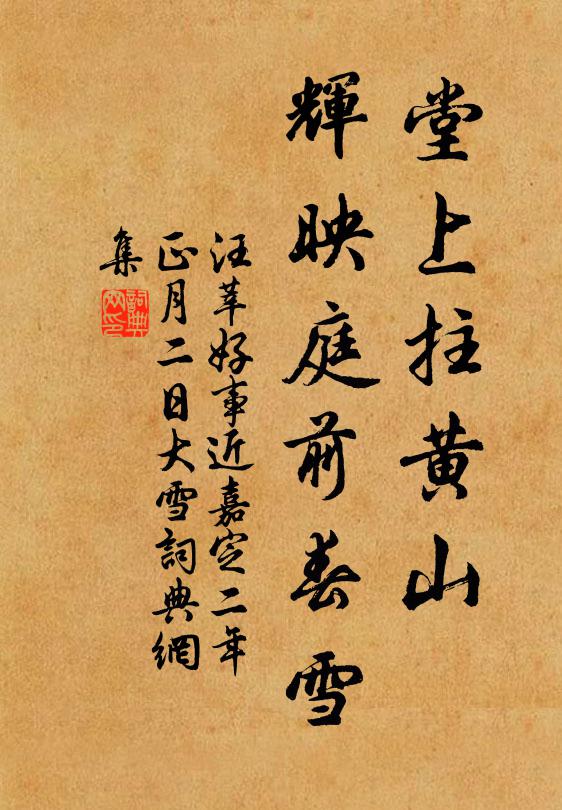 堂上拄黄山
輝映庭前春雪
汪莘好事近嘉定二年
正月二日大雪詞典網
集
詞典網印